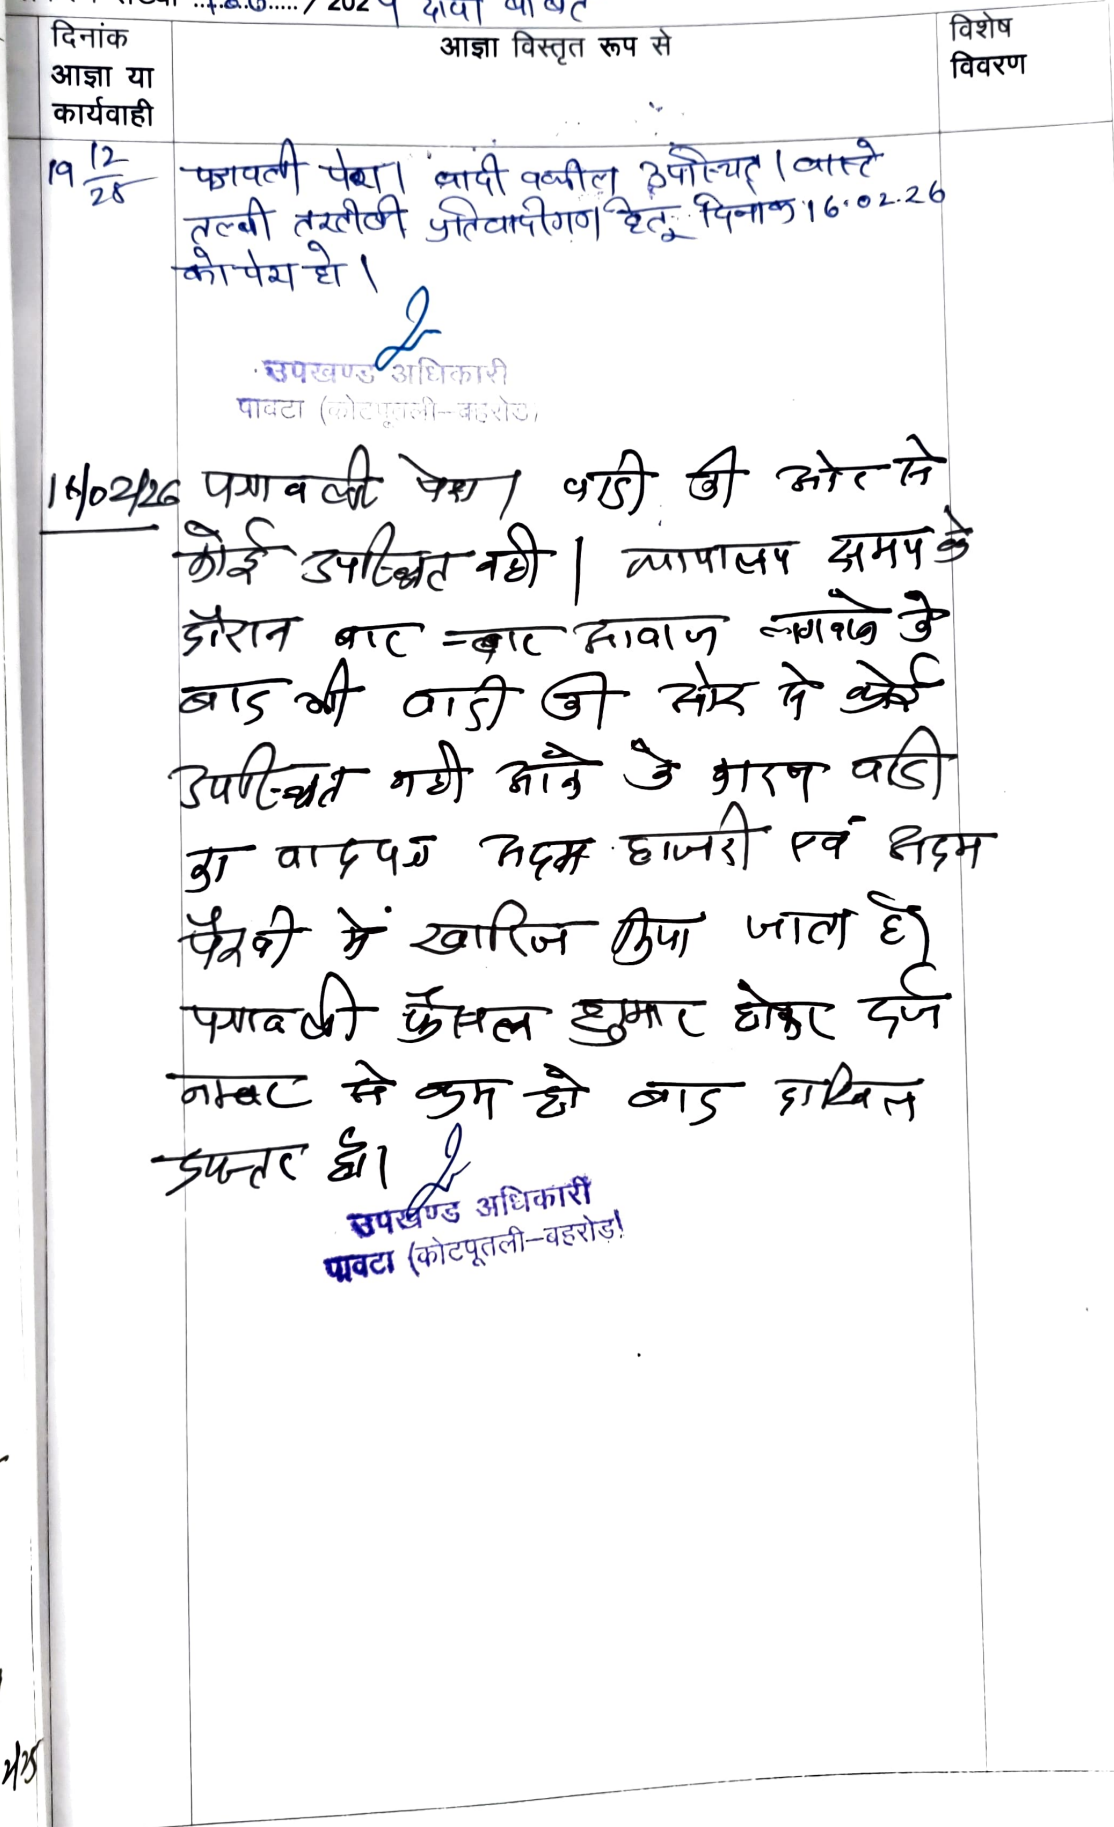 / 2024 दावा बाबत
दिनांक
आज्ञा या
कार्यवाही
आज्ञा विस्तृत रूप से
विशेष
विवरण
19 12/25 पत्रावली पेश। वादी वकील उपस्थित। वास्ते
तल्बी तरतीबी प्रतिवादीगण हेतू दिनांक 16.02.26
को पेश हो।
उपखण्ड अधिकारी
पावटा (कोटपूतली-बहरोड)
16/02/26 पत्रावली पेश। वादी की ओर से
कोई उपस्थित नही। न्यायालय समय के
दौरान बार-बार आवाज लगवाने के
बाद भी वादी की ओर से कोई
उपस्थित नही आने के कारण वादी
का वादपत्र अदम हाजरी एवं अदम
पैरवी में खारिज किया जाता है।
पत्रावली फैसल शुमार होकर दर्ज
नम्बर से कम हो बाद दाखिल
दफ्तर हो।
उपखण्ड अधिकारी
पावटा (कोटपूतली-बहरोड)
2/25